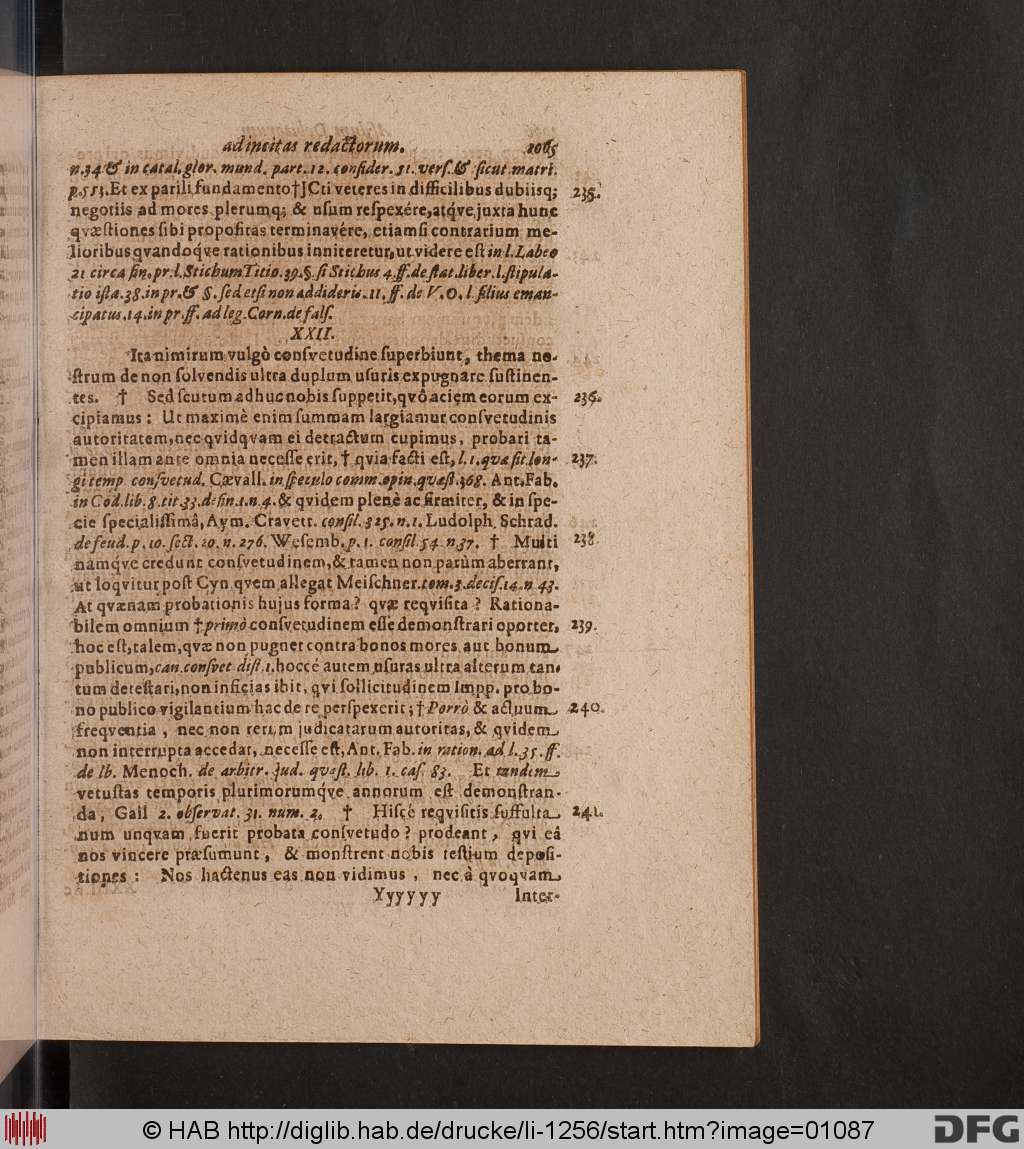 ad incitas redactorum. 1065
n.34 & in catal. glor. mund. part. 12. consider. 51. vers. & sicut matri.
p. 553. Et ex parili fundamento † JCti veteres in difficilibus dubiisq; 235.
negotiis ad mores plerumq; & usum respexére, atq́ve juxta hunc
qvæstiones sibi propositas terminavére, etiamsi contrarium me-
lioribus qvandoq́ve rationibus inniteretur, ut videre est in l. Labeo
21 circa fin. pr. l. Stichum Titio. 39. §. si Stichus 4. ff. de stat. liber. l. stipula-
tio ista. 38. in pr. & §. sed etsi non addideris. 11. ff. de V. O. l. filius eman-
cipatus. 14. in pr. ff. ad leg. Corn. de fals.
XXII.
Ita nimirum vulgò consvetudine superbiunt, thema no-
strum de non solvendis ultra duplum usuris expugnare sustinen-
tes. † Sed scutum adhuc nobis suppetit, qvô aciem eorum ex- 236.
cipiamus: Ut maximè enim summam largiamur consvetudinis
autoritatem, nec qvidqvam ei detractum cupimus, probari ta-
men illam ante omnia necesse erit, † qvia facti est, l. 1. quæ sit lon- 237.
gi temp. consvetud. Cævall. in speculo comm. opin. quæst. 368. Ant. Fab.
in Cod. lib. 8. tit. 33. defin. 1. n. 4. & qvidem plenè ac firmiter, & in spe-
cie specialissimâ, Aym. Cravett. consil. 325. n. 1. Ludolph. Schrad.
de feud. p. 10. sect. 20. n. 276. Wesemb. p. 1. consil. 54. n. 37. † Multi 238.
namq́ve credunt consvetudinem, & tamen non parùm aberrant,
ut loqvitur post Cyn. qvem allegat Meischner. tom. 3. decis. 14. n. 43.
At qvænam probationis hujus forma? qvæ reqvisita? Rationa-
bilem omnium † primò consvetudinem esse demonstrari oportet, 239.
hoc est, talem, qvæ non pugnet contra bonos mores aut bonum
publicum, can. consvet. dist. 1. hoccé autem usuras ultra alterum tan-
tum detestari, non inficias ibit, qvi sollicitudinem Impp. pro bo-
no publico vigilantium hac de re perspexerit; † Porrò & actuum 240.
freqventia, nec non rerum judicatarum autoritas, & qvidem
non interrupta accedat, necesse est, Ant. Fab. in ration. ad l. 35. ff.
de lb. Menoch. de arbitr. Jud. quæst. lib. 1. cas. 83. Et tandem
vetustas temporis plurimorumq́ve annorum est demonstran-
da, Gail 2. observat. 31. num. 2. † Hiscé reqvisitis suffulta 241.
num unqvam fuerit probata consvetudo? prodeant, qvi eâ
nos vincere præsumunt, & monstrent nobis testium deposi-
tiones: Nos hactenus eas non vidimus, nec à qvoqvam
Yyyyyy Inter-
© HAB http://diglib.hab.de/drucke/li-1256/start.htm?image=01087
DFG